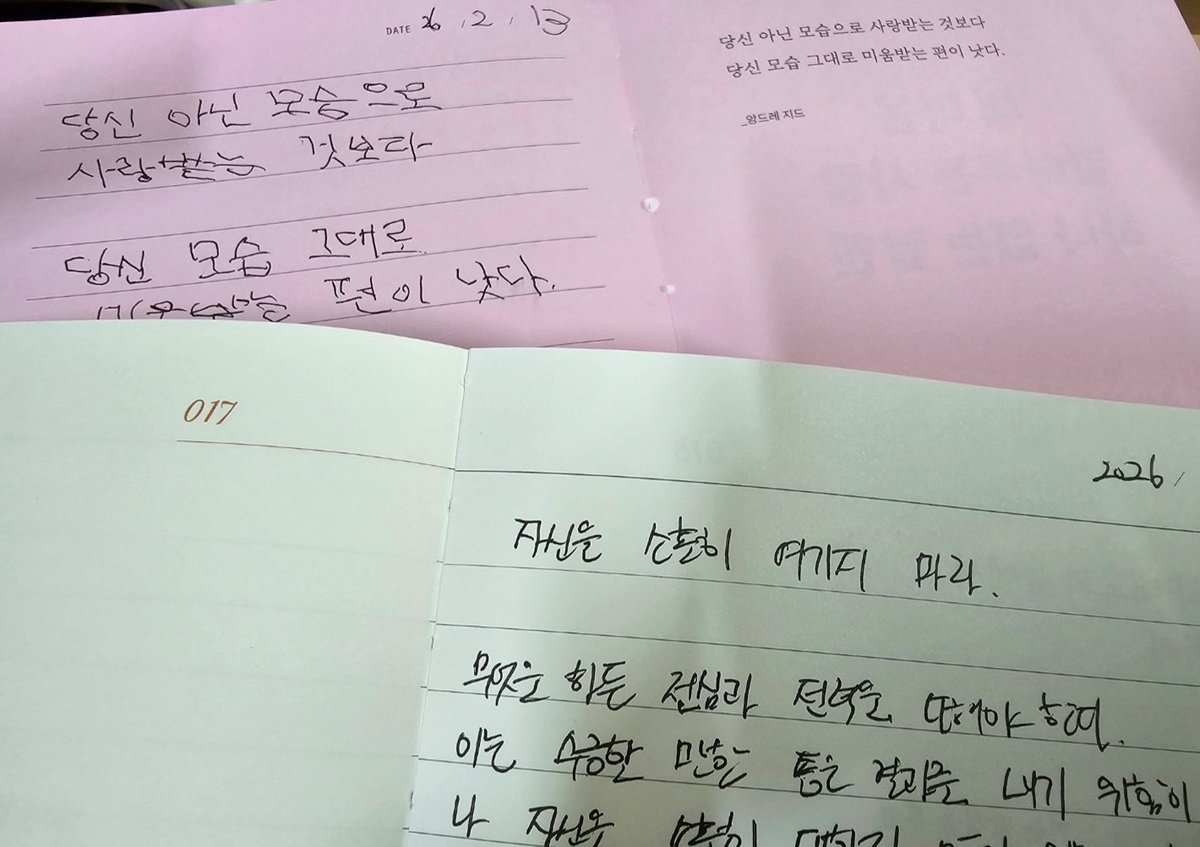 DATE 26 . 2 . 13
당신 아닌 모습으로
사랑받는 것보다
당신 모습 그대로
미움받는 편이 낫다.
당신 아닌 모습으로 사랑받는 것보다
당신 모습 그대로 미움받는 편이 낫다.
_앙드레 지드
017
2026.
자신을 소홀히 여기지 마라.
무엇을 하든 전심과 전력을 다해야 하며.
이는 수긍할 만한 좋은 결과를 내기 위함이
나 자신을 소홀히